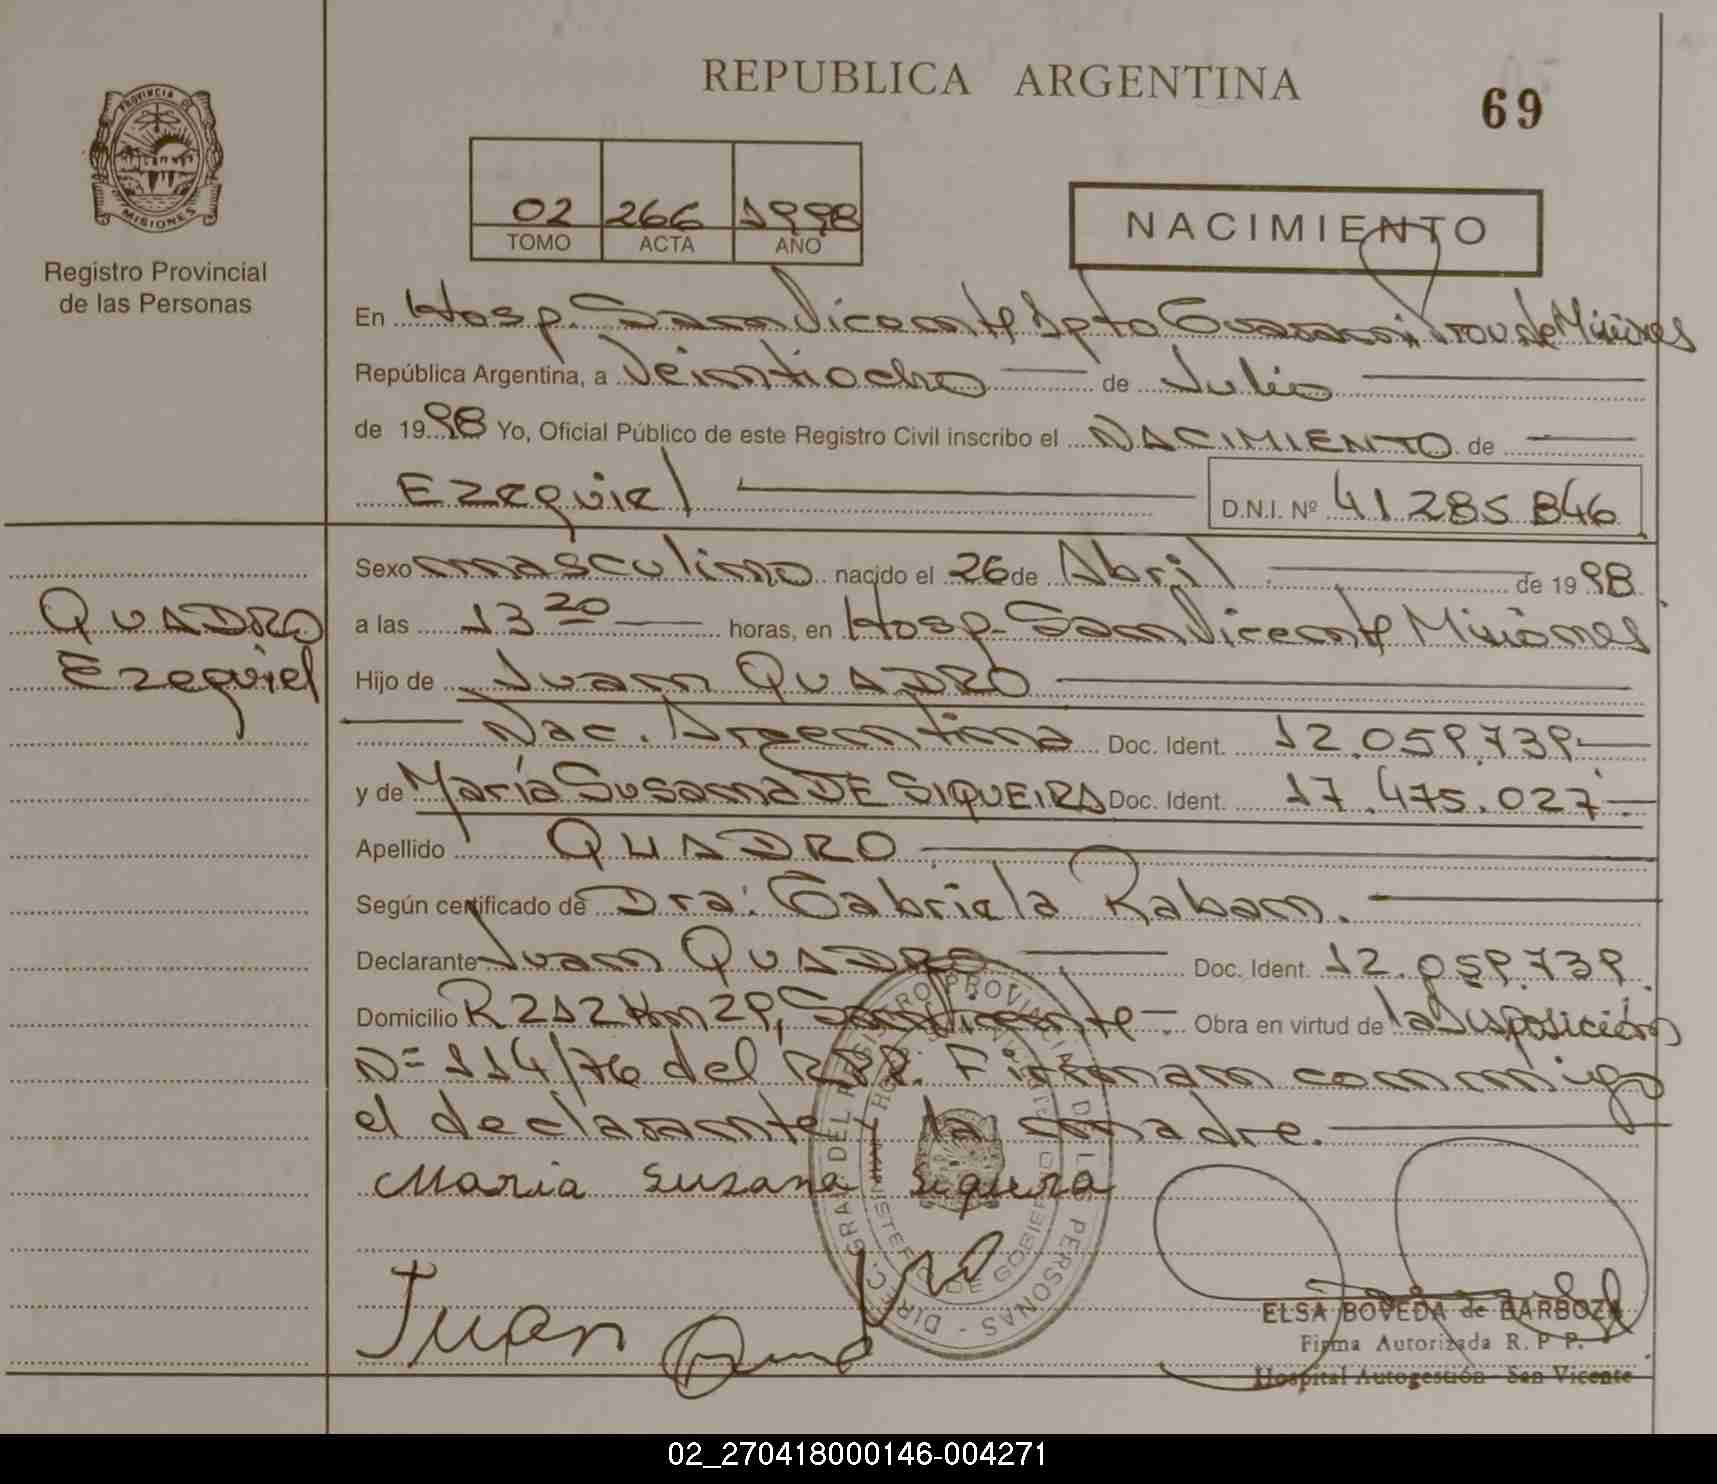 REPUBLICA ARGENTINA
69
PROVINCIA DE
MISIONES
Registro Provincial
de las Personas
02 266 1998
TOMO ACTA AÑO
NACIMIENTO
En Hosp. San Vicente Dpto Guaraní Prov. de Misiones
República Argentina, a Veintiocho de Julio
de 1998 Yo, Oficial Público de este Registro Civil inscribo el NACIMIENTO de
Ezequiel D.N.I. Nº 41 285 846
QUADRO
Ezequiel
Sexo masculino nacido el 26 de Abril de 1998
a las 13 20 horas, en Hosp. San Vicente Misiones
Hijo de Juan QUADRO
Nac. Argentina Doc. Ident. 12.059.739
y de María Susana DE SIQUEIRA Doc. Ident. 17.475.027
Apellido QUADRO
Según certificado de Dra: Gabriela Raban.
Declarante Juan QUADRO Doc. Ident. 12.059.739
Domicilio R 212 Km 29, San Vicente Obra en virtud de la Disposición
Nº 114/76 del RPP. Firman conmigo
el declarante y la madre.
Maria Suzana Siquera
Juan
DIREC. GRAL DEL REGISTRO PROVINCIAL DE LAS PERSONAS
MINISTERIO DE GOBIERNO
ELSA BOVEDA de BARBOZA
Firma Autorizada R. P P.
Hospital Autogestión - San Vicente
02_270418000146-004271